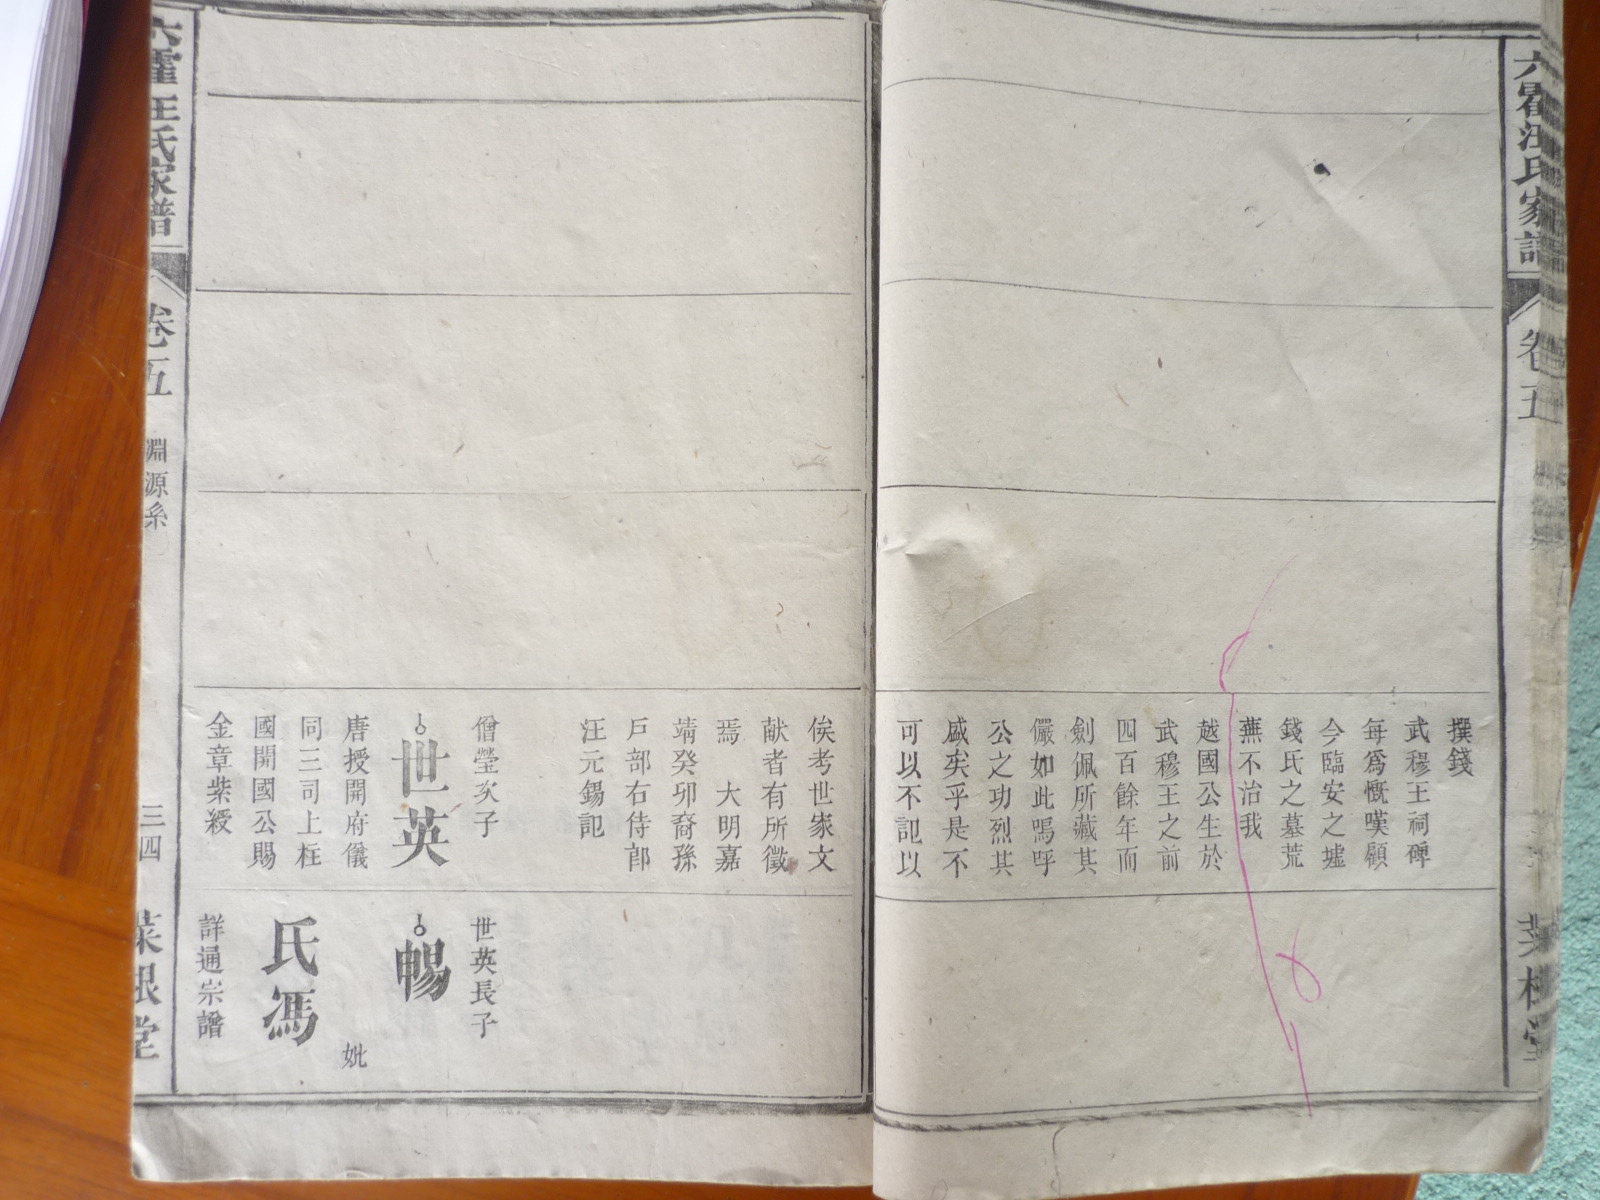 六霍汪氏家譜
卷五
撰錢
武穆王祠碑
每爲慨嘆顧
今臨安之墟
錢氏之墓荒
蕪不治我
越國公生於
武穆王之前
四百餘年而
劍佩所藏其
儼如此嗚呼
公之功烈其
盛矣乎是不
可以不記以
俟考世家文
献者有所徵
焉 大明嘉
靖癸卯裔孫
戶部右侍郎
汪元錫記
僧瑩次子
世英
唐授開府儀
同三司上柱
國開國公賜
金章紫綬
世英長子
暢
妣
氏馮
詳通宗譜
六霍汪氏家譜
卷五
淵源系
三四
菜根堂